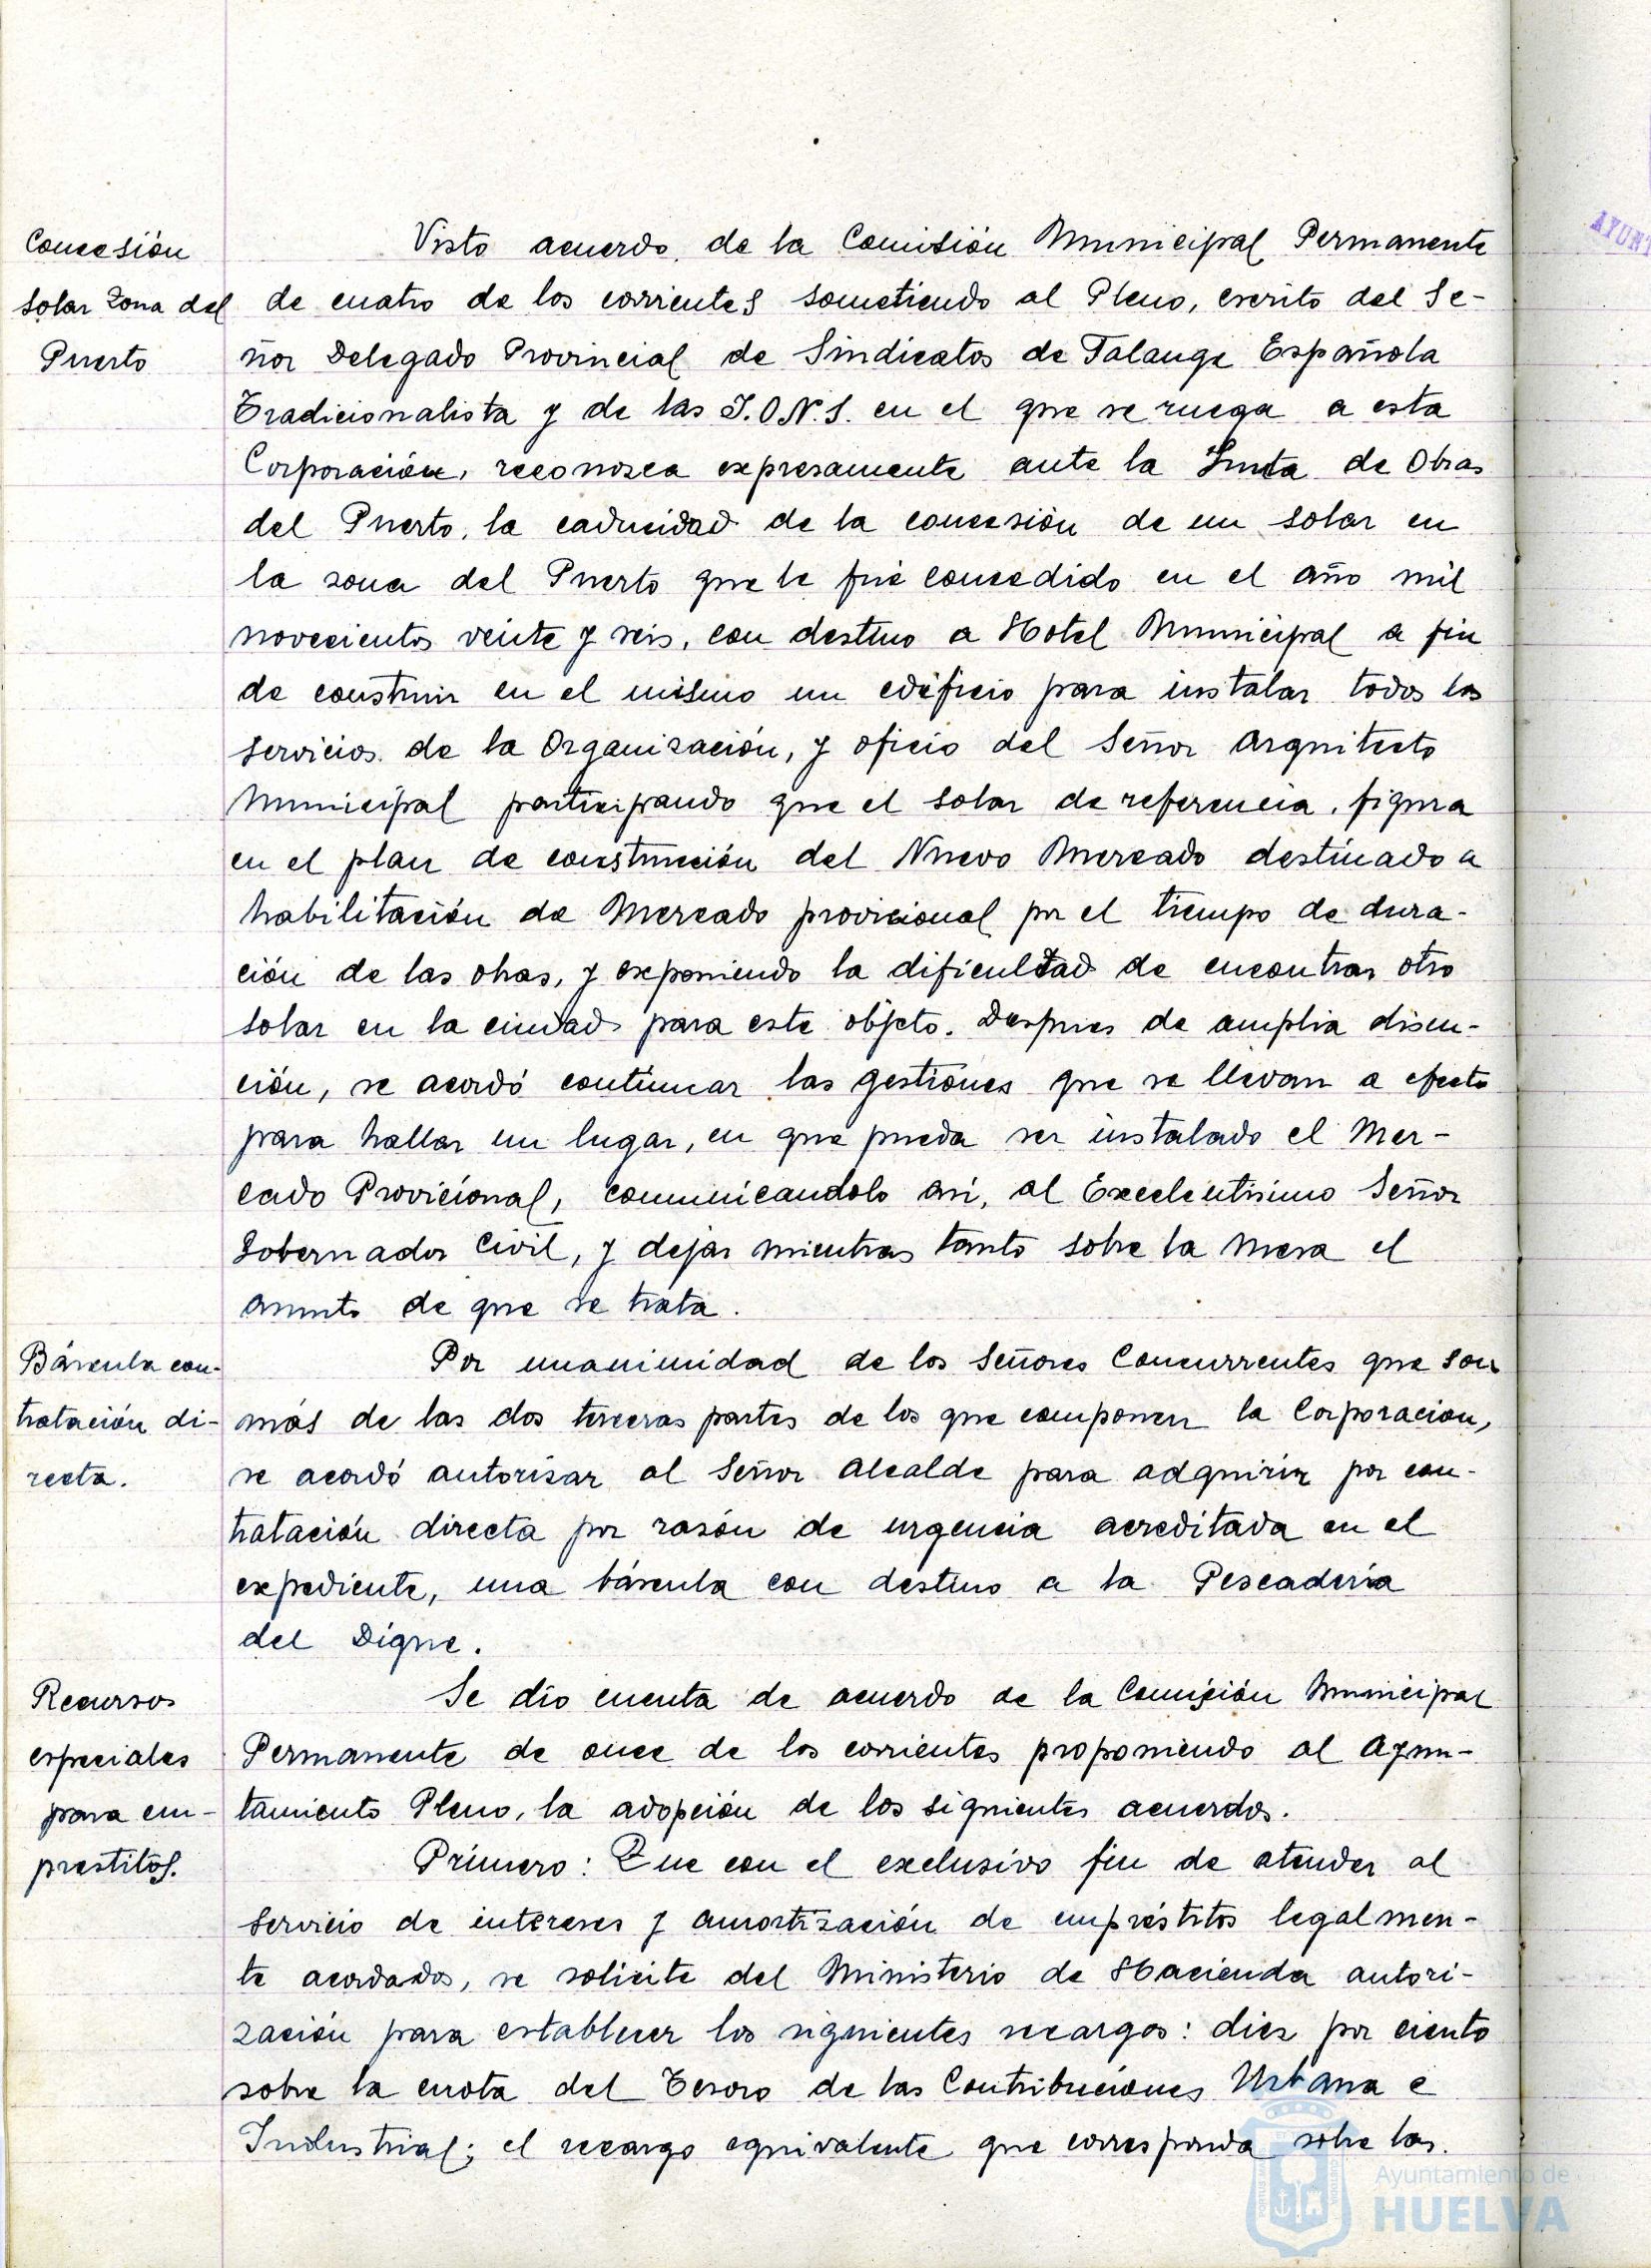 Concesión
solar Zona del
Puerto
Visto acuerdo, de la Comisión Municipal Permanente
de cuatro de los corrientes sometiendo al Pleno, escrito del Se-
ñor Delegado Provincial de Sindicatos de Falange Española
Tradicionalista y de las J.O.N.S. en el que se ruega a esta
Corporación, reconozca expresamente ante la Junta de Obras
del Puerto, la caducidad de la concesión de un solar en
la zona del Puerto que le fué concedido en el año mil
novecientos veinte y seis, con destino a Hotel Municipal a fin
de construir en el mismo un edificio para instalar todos los
servicios de la Organización, y oficio del Señor Arquitecto
Municipal participando que el solar de referencia, figura
en el plan de construcción del Nuevo Mercado destinado a
habilitación de Mercado provicional por el tiempo de dura-
ción de las obras, y exponiendo la dificultad de encontrar otro
solar en la ciudad para este objeto. Despues de amplia discu-
ción, se acordó continuar las gestiones que se llevan a efecto
para hallar un lugar, en que pueda ser instalado el Mer-
cado Provicional, comunicandolo asi, al Excelentisimo Señor
Gobernador Civil, y dejar mientras tanto sobre la mesa el
asunto de que se trata.
Báscula con-
tratación di-
recta.
Por unanimidad de los Señores Concurrentes que son
más de las dos terceras partes de los que componen la Corporacion,
se acordó autorizar al Señor Alcalde para adquirir por con-
tratación directa por razón de urgencia acreditada en el
expediente, una báscula con destino a la Pescadería
del Dique.
Recursos
especiales
para em-
prestitos.
Se dio cuenta de acuerdo de la Comisión Municipal
Permanente de once de los corrientes proponiendo al Ayun-
tamiento Pleno, la adopción de los siguientes acuerdos.
Primero: Que con el exclusivo fin de atender al
servicio de intereses y amortización de empréstitos legalmen-
te acordados, se solicite del Ministerio de Hacienda autori-
zación para establecer los siguientes recargos: diez por ciento
sobre la cuota del Tesoro de las Contribuciones Urbana e
Industrial; el recargo equivalente que corresponda sobre las
AYUNT
Ayuntamiento de
HUELVA